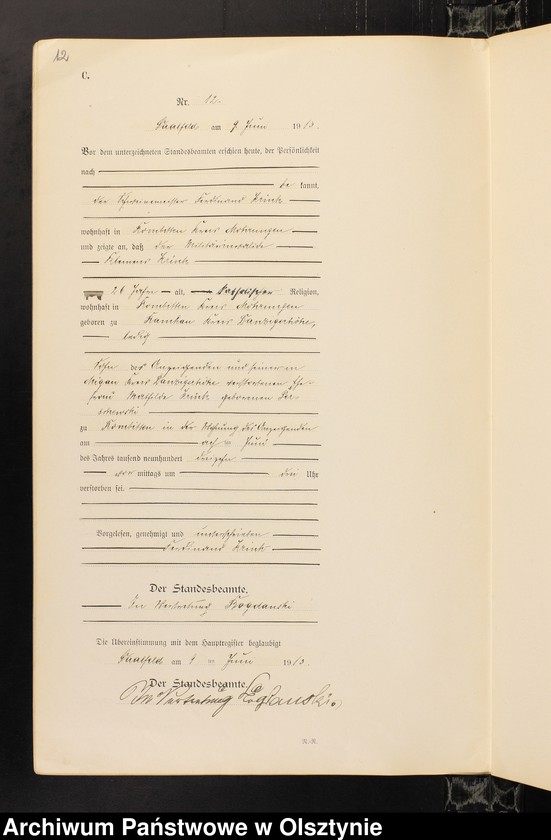 12
C.
Nr. 12.
Saalfeld am 9 Juni 1913.
Vor dem unterzeichneten Standesbeamten erschien heute, der Persönlichkeit
nach
be kannt,
der Schweinemeister Ferdinand
wohnhaft in Kombitten Kreis Mohrungen
und zeigte an, daß der Militärinvalide
Klemens
26 Jahre alt, katholischer Religion,
wohnhaft in Kombitten Kreis Mohrungen
geboren zu Kreis Danzigerhöhe,
ledig
Sohn des Anzeigenden und seiner in
Kreis Danzigerhöhe verstorbenen Ehe-
frau Mathilde geborenen
zu Kombitten in der Wohnung des Anzeigenden
am acht ten Juni
des Jahres tausend neunhundert dreizehn
vor mittags um drei Uhr
verstorben sei.
Vorgelesen, genehmigt und unterschrieben
Ferdinand
Der Standesbeamte.
In Vertretung Bogdanski
Die Übereinstimmung mit dem Hauptregister beglaubigt
Saalfeld am 9 ten Juni 1913.
Der Standesbeamte.
In Vertretung Bogdanski.
R.-R.
Archiwum Państwowe w Olsztynie